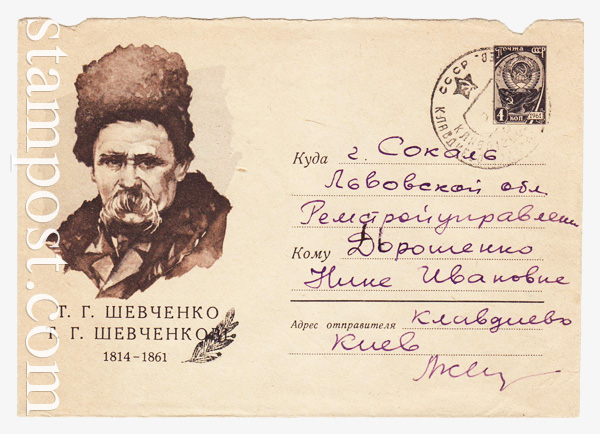 stampost.com
ПОЧТА СССР
4 КОП. 1961
СССР
Куда г. Сокаль
Львовской обл
Ремстройуправление
Кому Дорошенко
Нине Ивановне
Адрес отправителя Клавдиево
Киев
Т. Г. ШЕВЧЕНКО
Т. Г. ШЕВЧЕНКОВІ
1814–1861